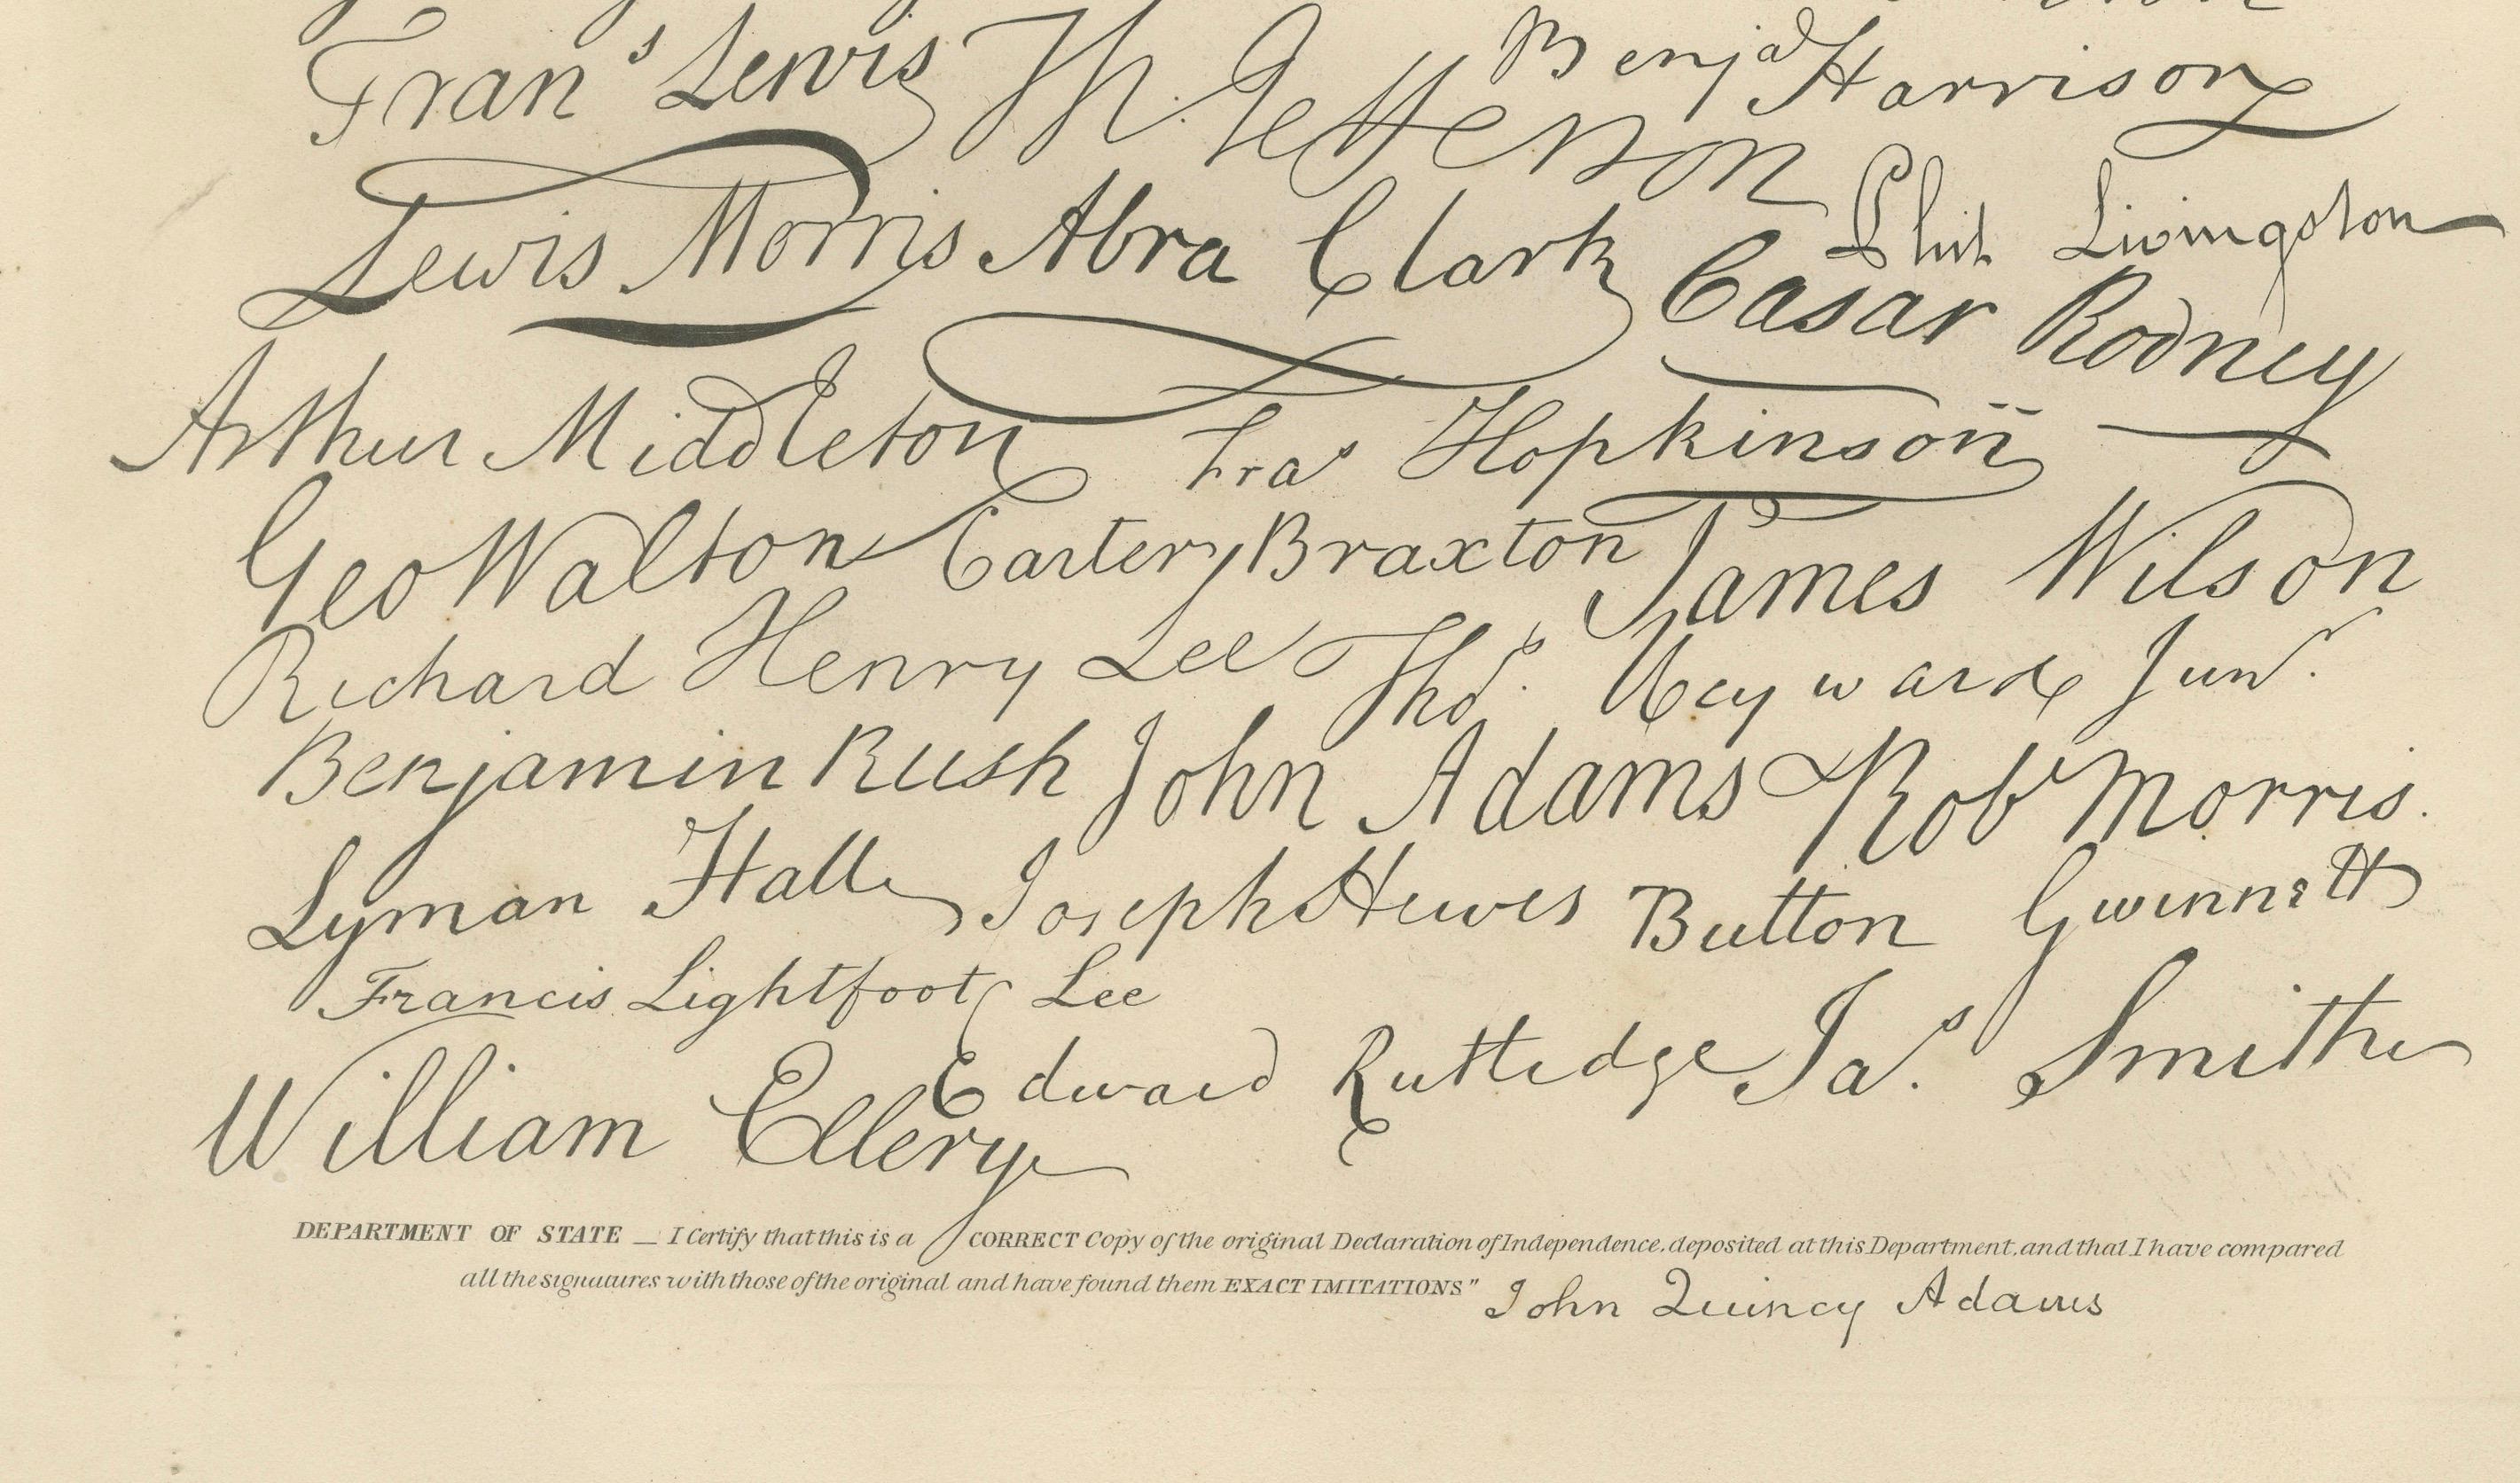 Fran^s Lewis Th. Jefferson Benj^a Harrison
Lewis Morris Abra Clark Phil. Livingston
Cæsar Rodney
Arthur Middleton Fra^s Hopkinson
Geo Walton Carter Braxton James Wilson
Richard Henry Lee Tho^s. Heyward Jun^r.
Benjamin Rush John Adams Rob^t Morris.
Lyman Hall Joseph Hewes Button Gwinnett
Francis Lightfoot Lee
William Ellery Edward Rutledge Ja^s. Smith
DEPARTMENT OF STATE — I Certify that this is a CORRECT Copy of the original Declaration of Independence, deposited at this Department, and that I have compared
all the signatures with those of the original and have found them EXACT IMITATIONS" John Quincy Adams